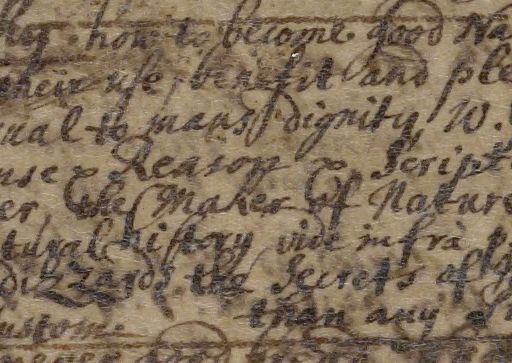 how to become good Na
their use, benefit and ple
ual to mans dignity, W.
nse & Reason & Script
er, the Maker of Nature
tural history vide infrà
dizzards the Secrets of
than any
ustom.